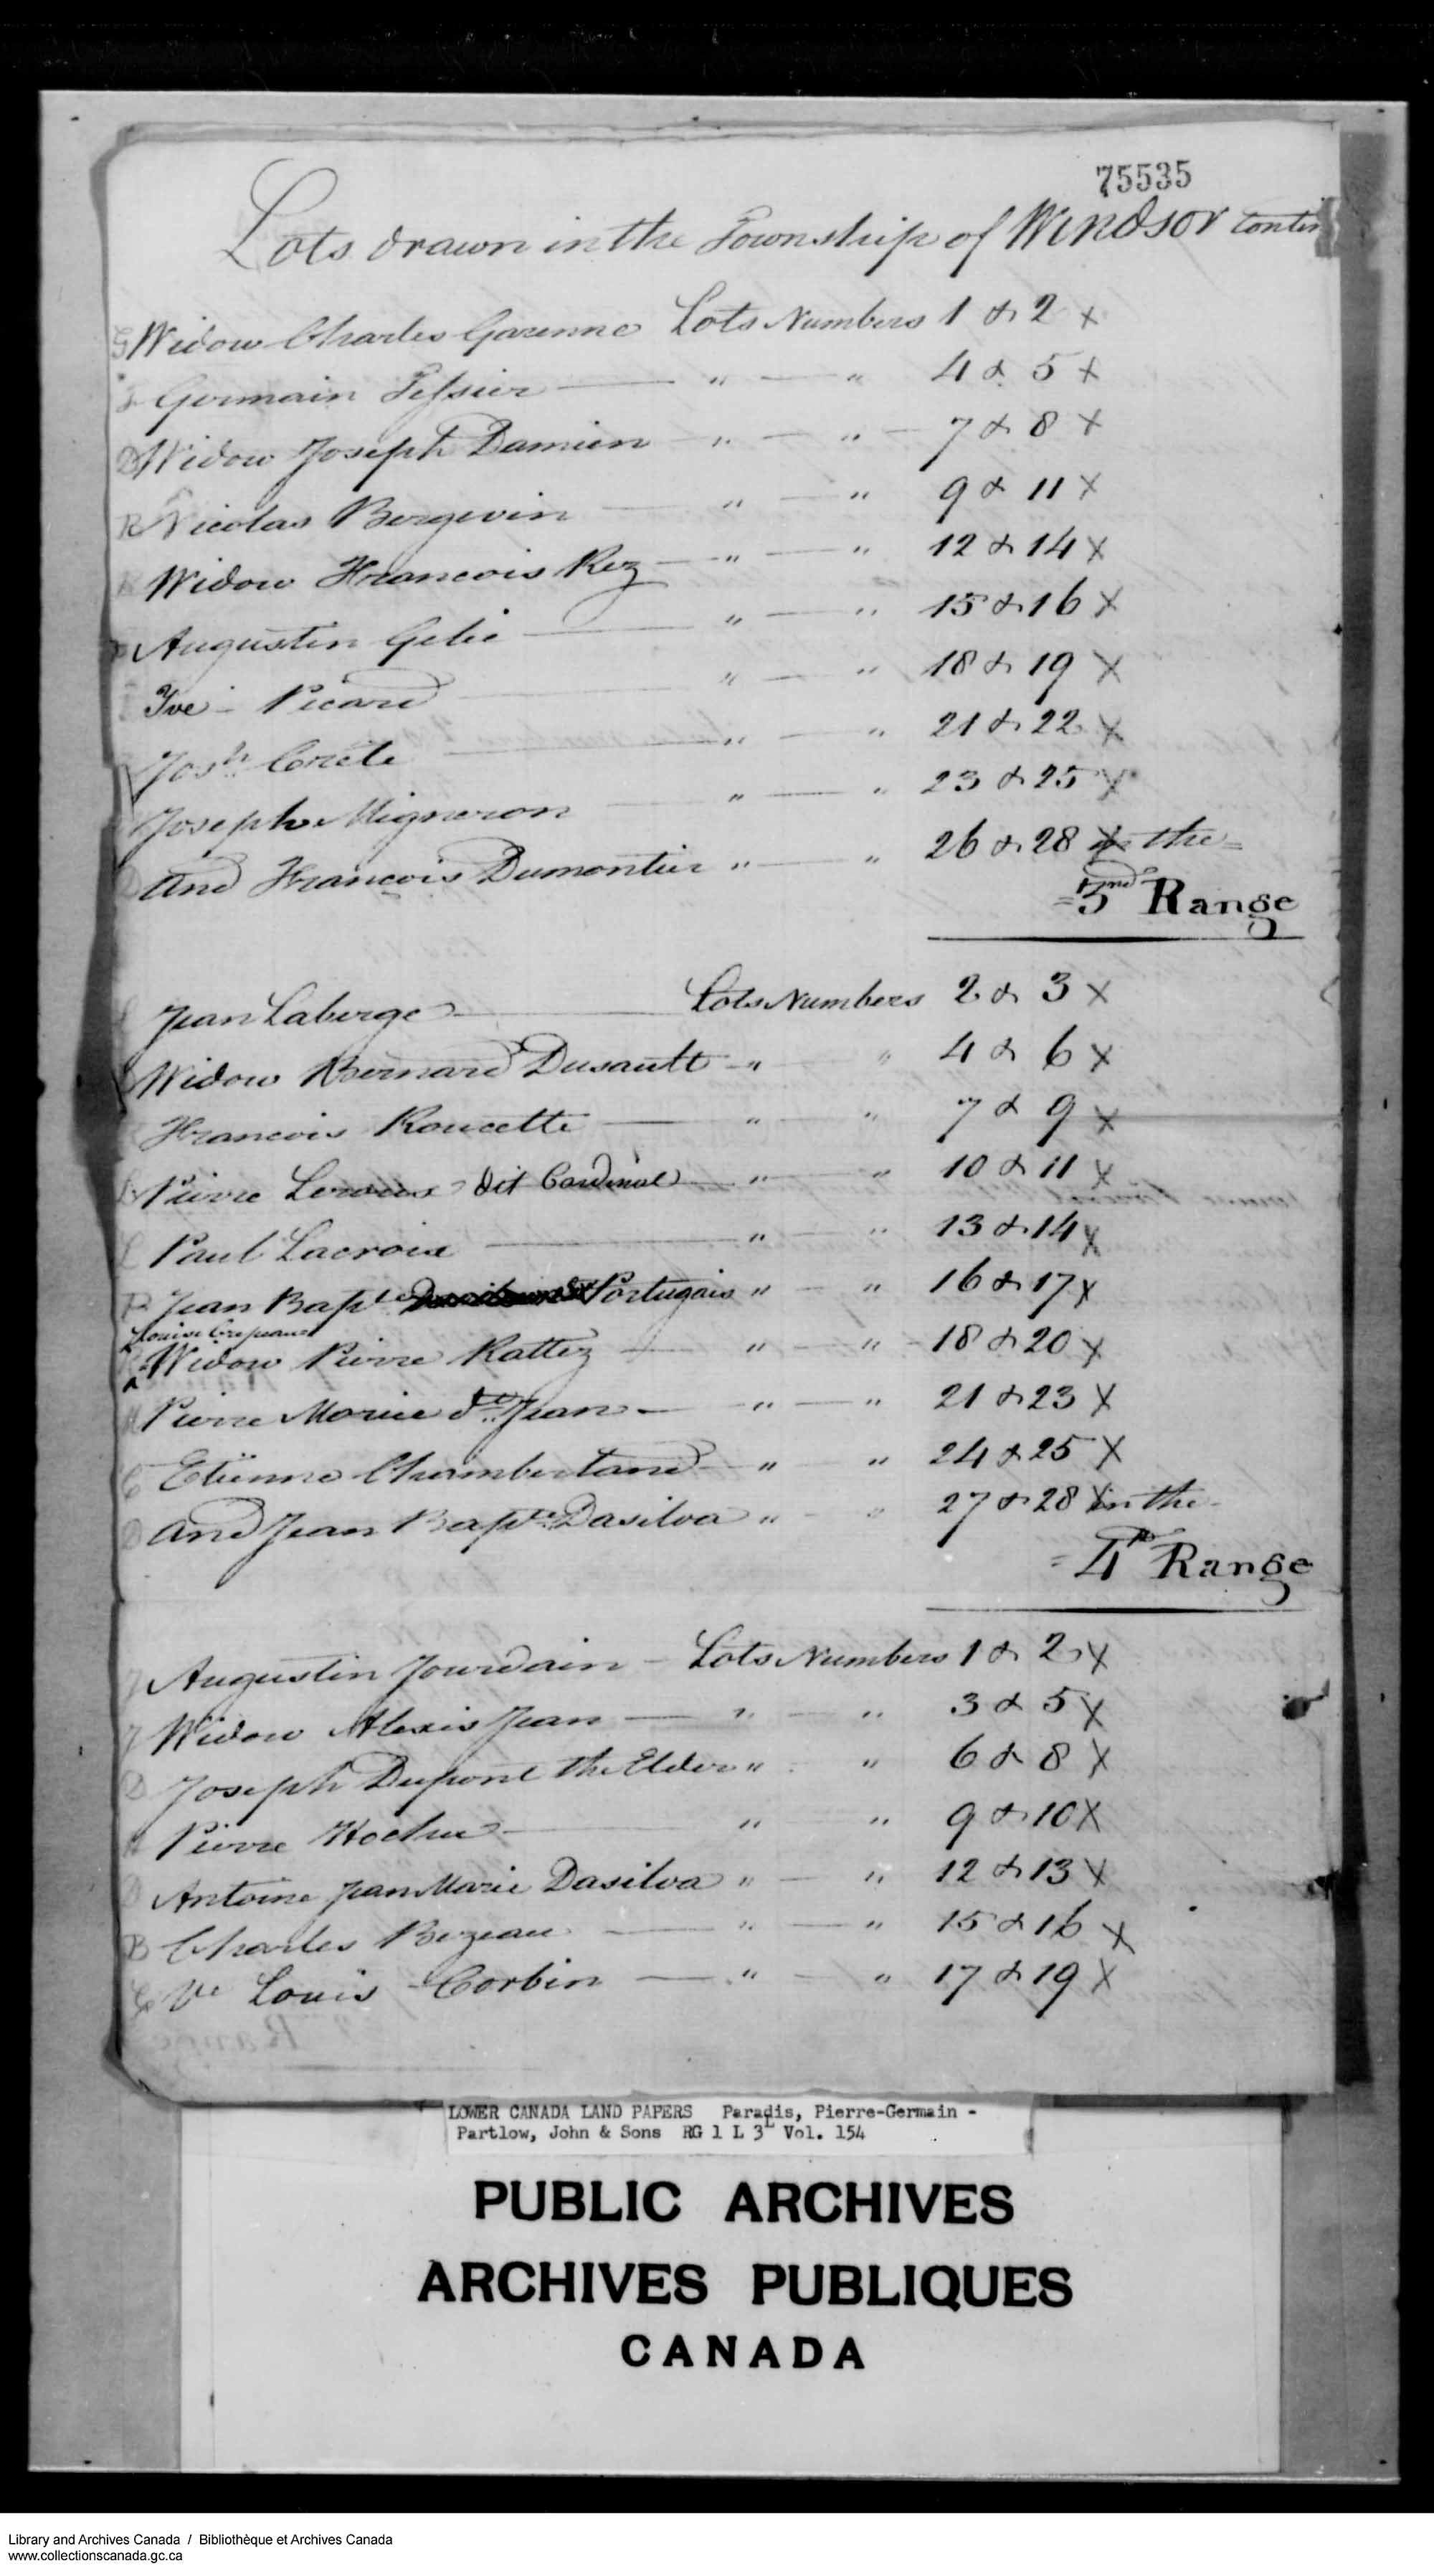 75535
Lots drawn in the Township of Windsor contin
G Widow Charles Garenne Lots Numbers 1 & 2 x
T Germain Tessier " " 4 & 5 x
D Widow Joseph Damien " " 7 & 8 x
Nicolas Bergevin " " 9 & 11 x
Widow Francois Rez " " 12 & 14 x
Augustin Gelie " " 15 & 16 x
Ive Picard " " 18 & 19 x
Josh. Corête " " 21 & 22 x
Joseph Migneron " " 23 & 25 x
and François Dumontier " " 26 & 28 x in the =
= 3nd Range
Jean Laberge Lots Numbers 2 & 3 x
Widow Bernard Dusault " " 4 & 6 x
Francois Roucette " " 7 & 9 x
Pierre Leroux dit Cardinal " " 10 & 11 x
L Paul Lacroix " " 13 & 14 x
P Jean Bapte. Portugais " " 16 & 17 x
Louise Crepeaux
Widow Pierre Rattez " " 18 & 20 x
M Pierre Morice dt. Jean " " 21 & 23 x
C Etiënne Chamberland " " 24 & 25 x
D and Jean Bapte. Dasilva " " 27 & 28 x in the -
= 4th Range
J Augustin Jourdain Lots Numbers 1 & 2 x
J Widow Alexis Jean " " 3 & 5 x
D Joseph Dupont the Elder " " 6 & 8 x
H Pierre Hochu " " 9 & 10 x
D Antoine Jean Marie Dasilva " " 12 & 13 x
B Charles Bezeau " " 15 & 16 x
C Ve Louis Corbin " " 17 & 19 x
LOWER CANADA LAND PAPERS Paradis, Pierre-Germain -
Partlow, John & Sons RG 1 L 3L Vol. 154
PUBLIC ARCHIVES
ARCHIVES PUBLIQUES
CANADA
Library and Archives Canada / Bibliothèque et Archives Canada
www.collectionscanada.gc.ca